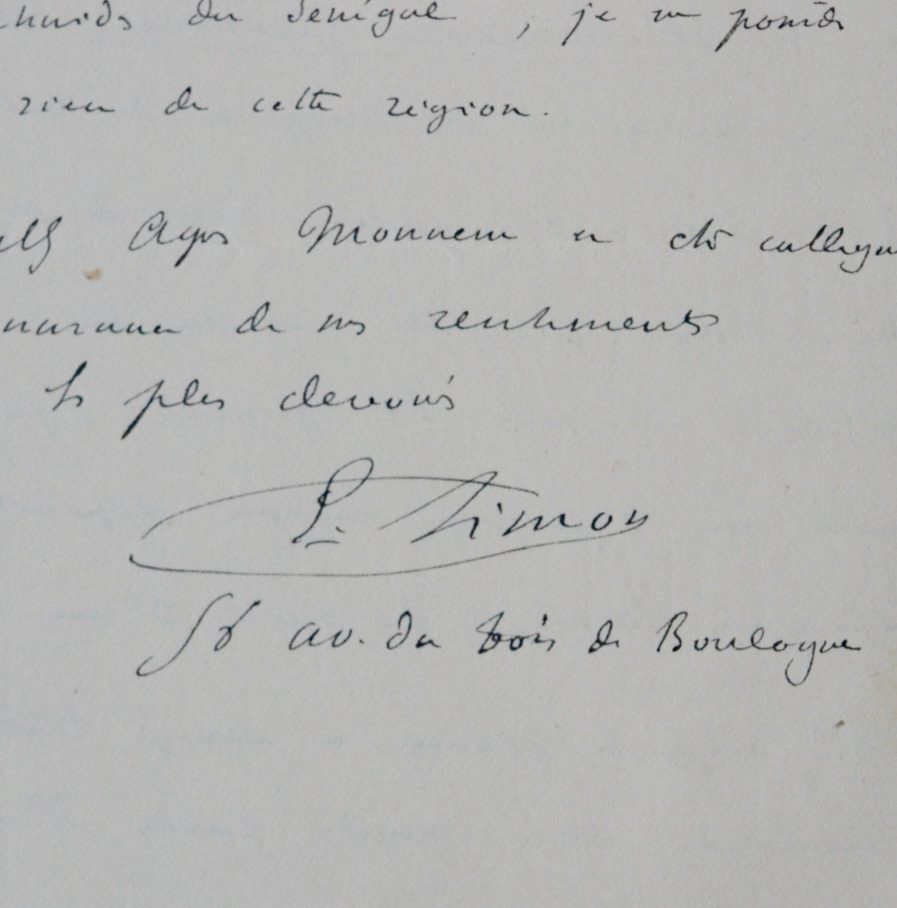 du Sénégal, je ne possède
rien de cette région.
Agréez Monsieur et cher collègue
de mes sentiments
les plus dévoués
E. Simon
56 av. du bois de Boulogne